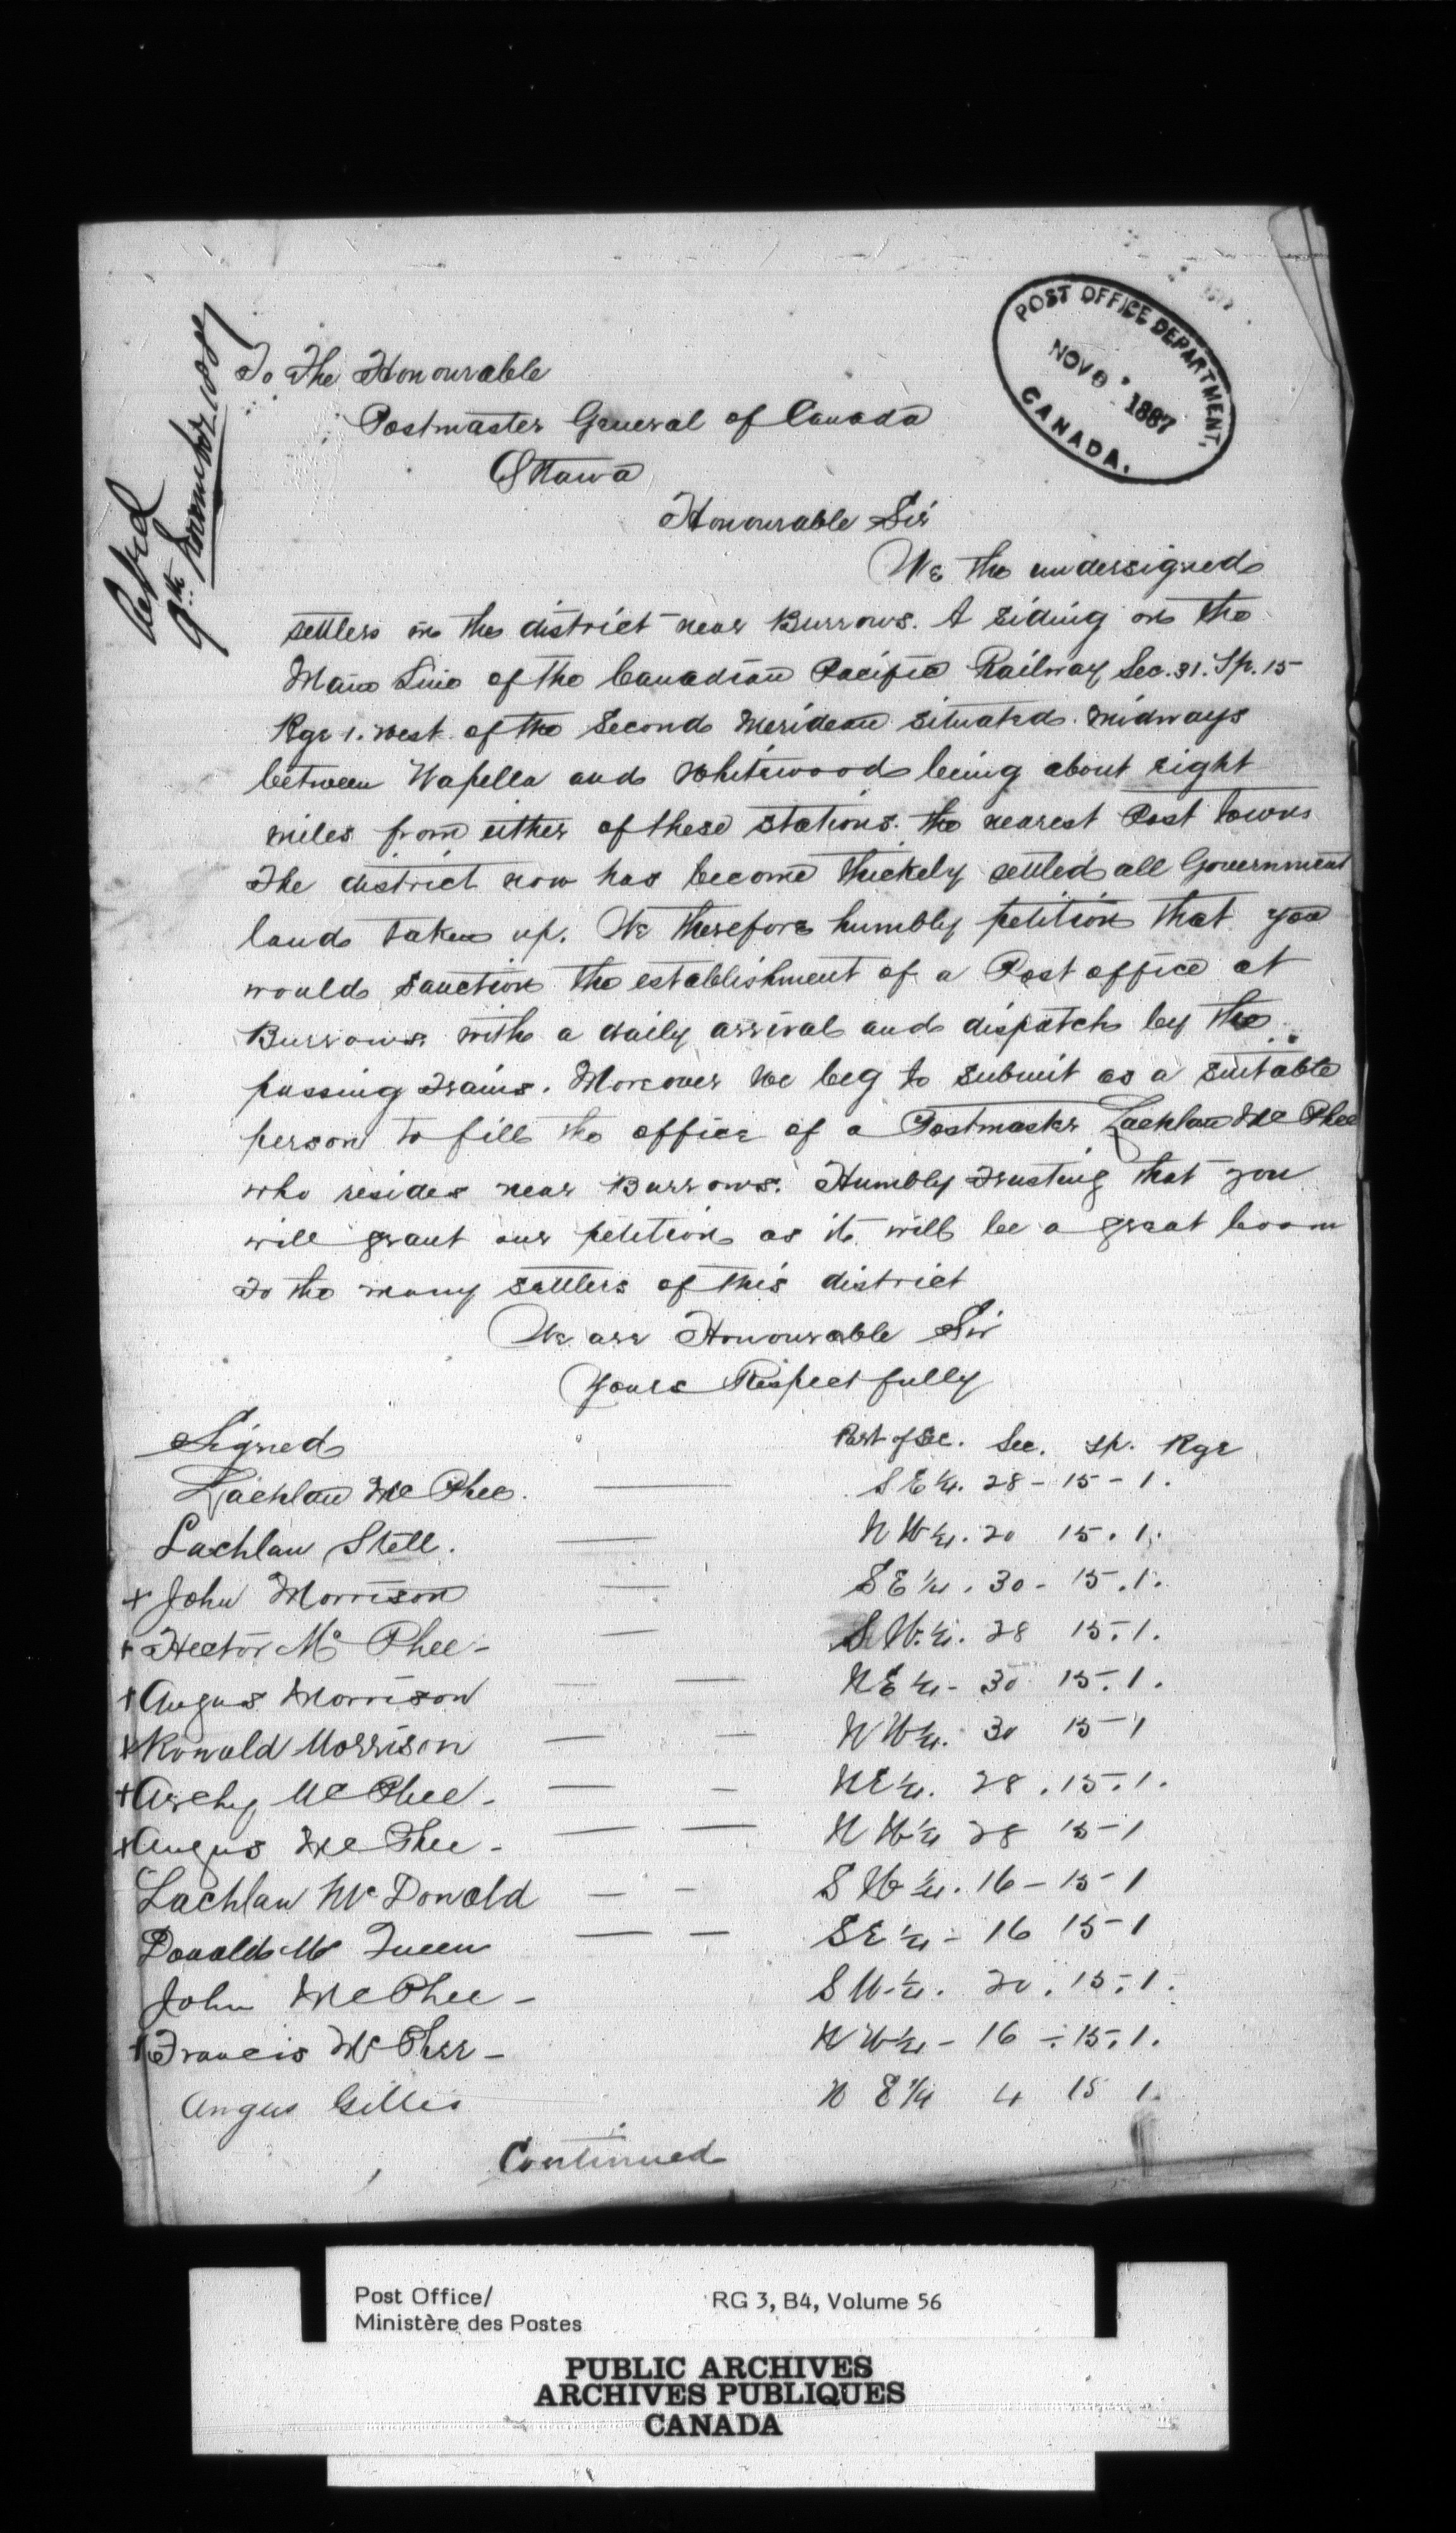 POST OFFICE DEPARTMENT,
NOV 8 1887
CANADA.
9th November 1887
To The Honourable
Postmaster General of Canada
Ottawa
Honourable Sir
We the undersigned
settlers in the district near Burrows. A siding on the
Main Line of the Canadian Pacific Railway Sec. 31. Tp. 15
Rge 1. West of the Second Meridean situated midways
between Wapella and Whitewood being about eight
miles from either of these stations. the nearest Post towns
The district now has become thickely settled all Government
land taken up. We therefore humbly petition that you
would sanction the establishment of a Post office at
Burrows. with a daily arrival and dispatch by the
passing trains. Moreover we beg to submit as a suitable
person to fill the office of a Postmaster Lachlan McPhee
who resides near Burrows. Humbly trusting that you
will grant our petition as it will be a great boom
to the many settlers of this district
We are Honourable Sir
Yours Respectfully
Signed Part of Sec. Sec. Tp. Rge
Lachlan McPhee. S E ¼. 28 - 15 - 1.
Lachlan Stell. N W ¼. 20 15. 1.
+ John Morrison S E ¼. 30 - 15. 1.
+ Hector Mc Phee - S W. ¼. 28 15. 1.
+ Angus Morrison N E ¼ - 30 15. 1.
+ Ronald Morrison N W ¼. 30 15 - 1
+ Archy McPhee - N E ¼. 28. 15. 1.
+ Angus McPhee - N W ¼ 28 15 - 1
Lachlan McDonald S W ¼. 16 - 15 - 1
Donald Mc Queen S E ¼ - 16 15 - 1
John McPhee - S W. ¼. 20. 15. 1.
+ Francis McPhee - N W ¼ - 16 - 15. 1.
Angus Gillis N E ¼ 4 15 1.
Continued
Post Office/
Ministère des Postes
RG 3, B4, Volume 56
PUBLIC ARCHIVES
ARCHIVES PUBLIQUES
CANADA